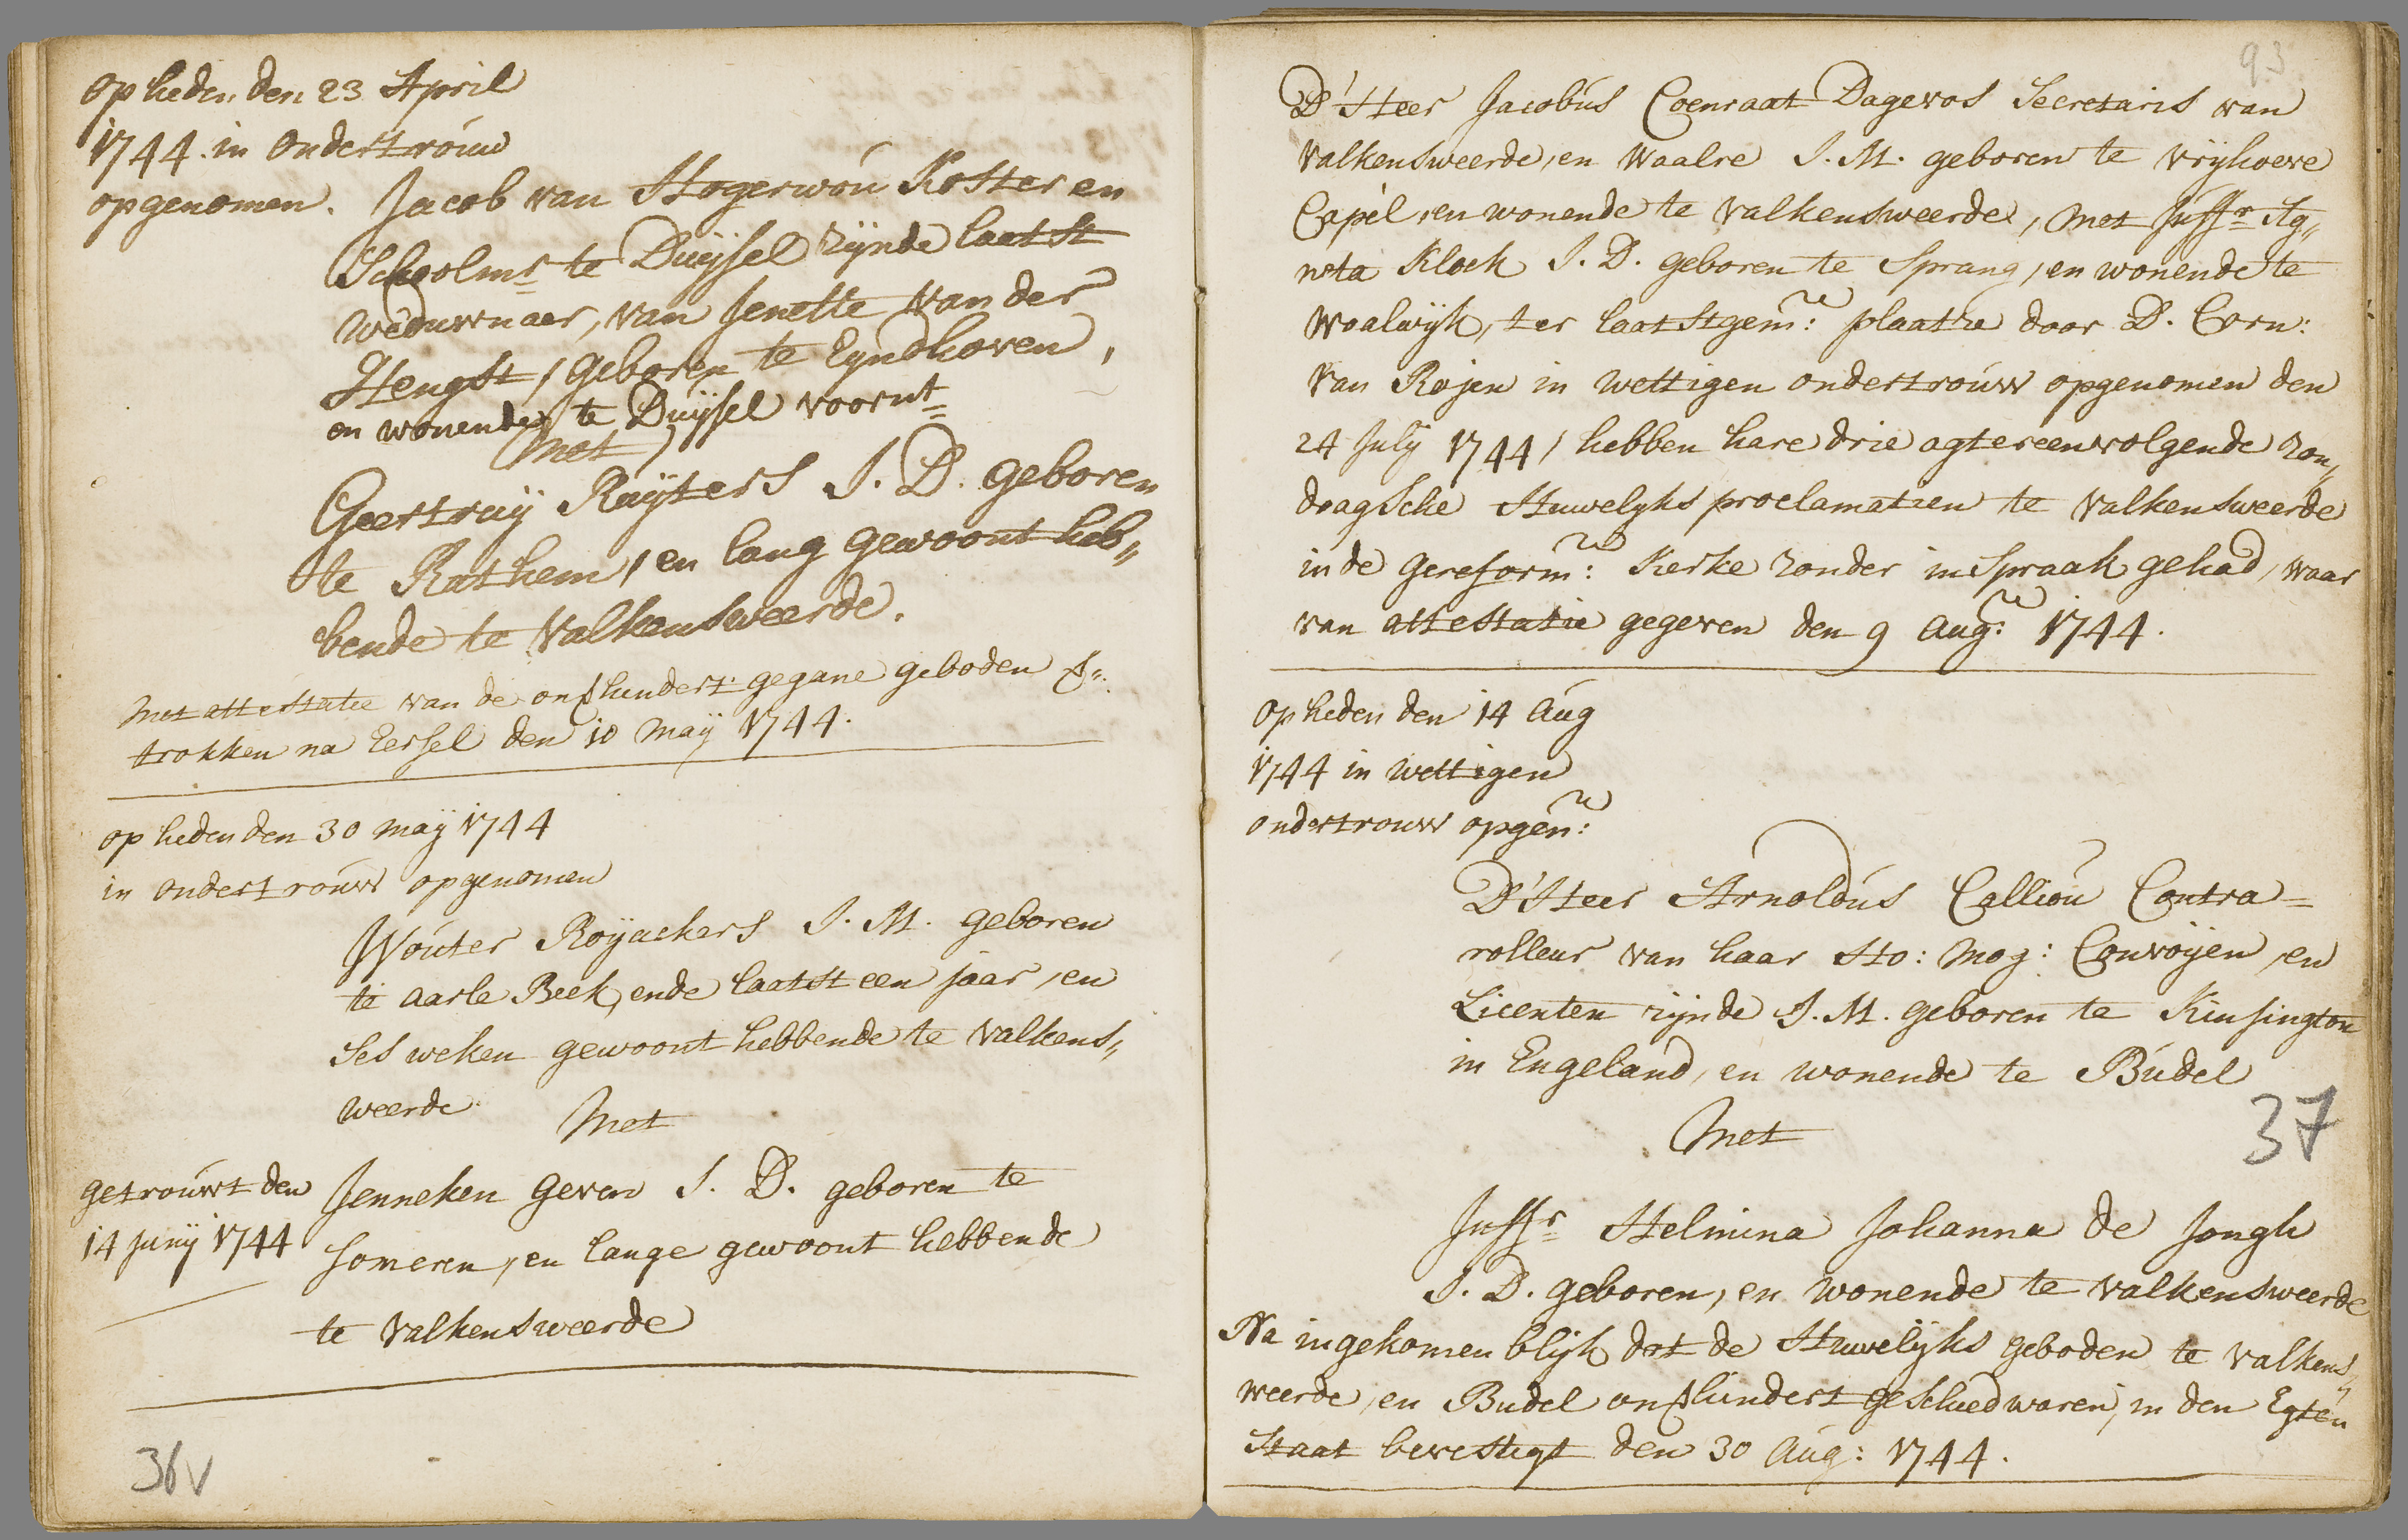 op heden den 23 April
1744 in ondertrouw
opgenomen. Jacob van Hogerwou Koster en
Schoolmr te Duijsel zijnde laatst
weduwnaer, van Jenette van der
Hengst, geboren te Eyndhoven,
en wonende te Duijsel voornt
met
Geertruij Ruijters J. D. geboren
te Rathem, en lang gewoont heb„
bende te Valkensweerde.
met attestatie van de onverhindert gegane geboden
trokken na Eersel den 10 maij 1744.
op heden den 30 maij 1744
in ondertrouw opgenomen
Wouter Roijackers J. M. geboren
te aarle Beek, ende laatst een jaar, en
ses weken gewoont hebbende te Valkens„
weerde
Met
getrouwt den Jenneken Geven J. D. geboren te
14 junij 1744 Someren, en lange gewoont hebbende
te Valkensweerde
36v
93
D'Heer Jacobus Coenraat Dagevos Secretaris van
Valkensweerde, en Waalre J. M. geboren te Vrijhoeve
Capél, en wonende te Valkensweerde, met Juffr Ag„
neta Kloek J. D. geboren te Sprang, en wonende te
Waalwijk, ter laatstgem: plaatze door D. Corn:
van Rojen in wettigen ondertrouw opgenomen den
24 July 1744, hebben hare drie agtereenvolgende Zon„
daagsche Huwelyks proclamatien te Valkensweerde
in de gereform: Kerke zonder inspraak gehad, waar
van attestatie gegeven den 9 Aug: 1744.
op heden den 14 Aug
1744 in wettigen
ondertrouw opgen:
D'Heer Arnoldus Calliou Contra=
rolleur van haar Ho: Mog: Convoijen, en
Licenten zijnde J. M. geboren te Kinsington
in Engeland, en wonende te Budel
Met
37
Juffr Helmina Johanna de Jongh
J. D. geboren, en wonende te Valkensweerde
Na ingekomen blijk dat de Huwelijks geboden te Valkens„
weerde, en Budel onverhindert geschied waren, in den Egten
Staat bevestigt den 30 Aug: 1744.